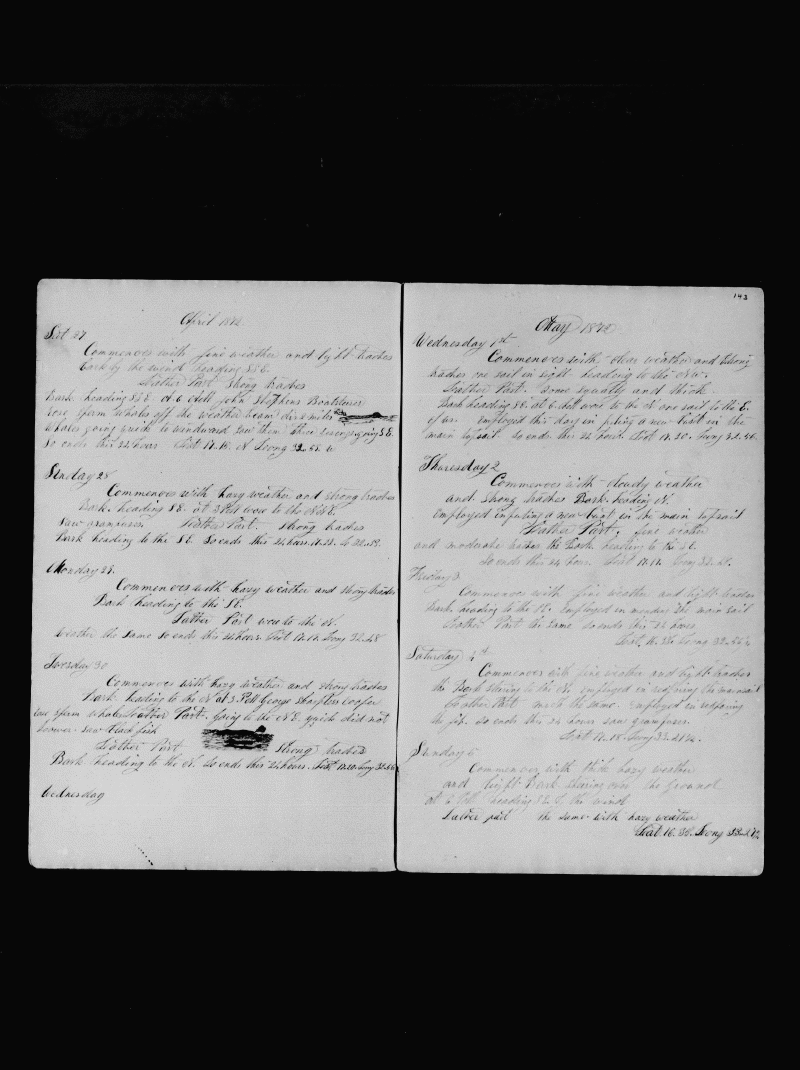 April 1872
Sat 27
Commences with fine weather and light traches
bark by the wind heading S E
Lather Part Strong traches
Bark heading S E At 6 John Stephens Boatsteerer
rose sperm whales off the weather beam dis 2 miles
whales going quick to windward saw them going S E
So ends this 24 hours Lat 17.18 Long 32.
Sunday 28
Commences with hazy weather and strong traches
Bark heading S E at 3 wore to the
Saw grampuses Lather Part Strong trades
Bark heading to the S E So ends this 24 hours
Monday 29
Commences with hazy weather and strong traches
Bark heading to the S E
Lather Part wore to the N
weather the same So ends this 24 hours Lat 17.17 Long 32.28
Tuesday 30
Commences with hazy weather and strong traches
Bark heading to the N at 3 George Cooper
rose sperm whales Lather Part going to the N E quick did not
lower saw Black fish
Lather Part strong trades
Bark heading to the N So ends this 24 hours Lat Long
Wednesday
143
May 1872
Wednesday 1st
Commences with clear weather and strong
traches one sail in sight heading to the N W
Lather Part some squalls and thick
Bark heading S E at 6 wore to the N one sail to the E
of us employed this day in puting a new in the
main topsail so ends this 24 hours Lat 17.20 Long 32.
Thuresday 2
Commences with cloudy weather
and strong traches Bark heading N
employed in puting a new in the main topsail
Lather Part, fine wather
and moderate traches the Bark heading to the S E
So ends this 24 hours Lat 17.17 Long 32.
Friday 3
Commences with fine weather and light traches
Bark heading to the employed in mending the main sail
Lather Part the same So ends this 24 hours
Lat 16. Long 32.
Saturday 4th
Commences with fine weather and light traches
the Bark steering to the employed in repairing the mainsail
Lather Part much the same employed in repairing
the jib so ends this 24 hours saw grampuses
Lat 17.18 Long 33.
Sunday 5
Commences with thick hazy weather
and light Bark steering over the ground
at 6 heading the wind
Lather part the same with hazy weather
Lat 16.38 Long